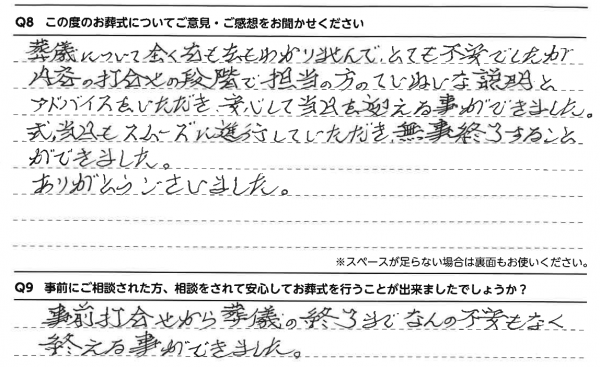 Q8 この度のお葬式についてご意見・ご感想をお聞かせください
葬儀について全く右も左もわかりませんで、とても不安でしたが
内容の打合せの段階で担当の方のていねいな説明と
アドバイスをいただき、安心して当日を迎える事ができました。
式当日もスムーズに進行していただき、無事終了すること
ができました。
ありがとうございました。
※スペースが足らない場合は裏面もお使いください。
Q9 事前にご相談された方、相談をされて安心してお葬式を行うことが出来ましたでしょうか?
事前打合せから葬儀の終了までなんの不安もなく
終える事ができました。